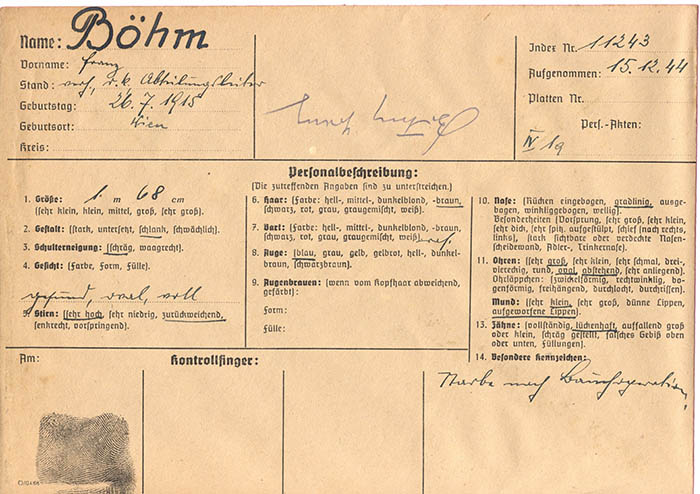 Name: Böhm
Vorname: Franz
Stand: verh., r.k. Abteilungsleiter
Geburtstag: 26.7.1915
Geburtsort: Wien
Kreis:
Index Nr. 11243
Aufgenommen: 15.12.44
Platten Nr.
Pers.-Akten:
IV 1a
Personalbeschreibung:
(Die zutreffenden Angaben sind zu unterstreichen.)
1. Größe: 1 m 68 cm
(sehr klein, klein, mittel, groß, sehr groß).
2. Gestalt: (stark, untersetzt, schlank, schwächlich).
3. Schulterneigung: (schräg, waagrecht).
4. Gesicht: (Farbe, Form, Fülle).
gesund, oval, voll
5. Stirn: (sehr hoch, sehr niedrig, zurückweichend,
senkrecht, vorspringend).
6. Haar: (Farbe: hell-, mittel-, dunkelblond, -braun,
schwarz, rot, grau, graugemischt, weiß).
7. Bart: (Farbe: hell-, mittel-, dunkelblond, -braun,
schwarz, rot, grau, graugemischt, weiß)
8. Auge: (blau, grau, gelb, gelbrot, hell-, dunkel-
braun, schwarzbraun).
9. Augenbrauen: (wenn vom Kopfhaar abweichend,
gefärbt):
Form:
Fülle:
10. Nase: (Rücken eingebogen, gradlinig, ausge-
bogen, winkliggebogen, wellig).
Besonderheiten (Vorsprung, sehr groß, sehr klein,
sehr dick, sehr spitz, aufgestülpt, schief [nach rechts,
links], stark sichtbare oder verdeckte Nasen-
scheidewand, Adler-, Trinkernase).
11. Ohren: (sehr groß, sehr klein, sehr schmal, drei-,
vierreckig, rund, oval, abstehend, sehr anliegend).
Ohrläppchen: (zwickelförmig, rechtwinklig, bo-
genförmig, freihängend, durchlocht, durchrissen).
Mund: (sehr klein, sehr groß, dünne Lippen,
aufgeworfene Lippen).
13. Zähne: (vollständig, lückenhaft, auffallend groß
oder klein, schräg gestellt, falsches Gebiß oben
oder unten, Füllungen).
14. Besondere Kennzeichen:
Narbe nach Bauchoperation
Am:
Kontrollfinger: